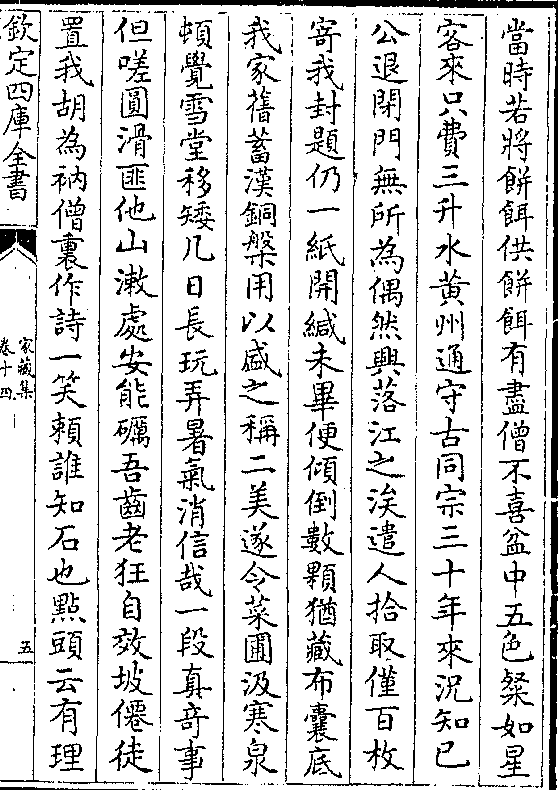 當時若將餅餌供餅餌有盡僧不喜盆中五色粲如星
客來只費三升水黄州通守古同宗三十年來況知已
公退閉門無所為偶然興落江之涘遣人拾取僅百枚
寄我封題仍一紙開緘未畢便傾倒數顆猶藏布囊底
我家舊蓄漢銅槃用以盛之稱二美遂令菜圃汲寒泉
頓覺雪堂移矮几日長玩弄暑氣消信哉一段真竒事
但嗟圓滑匪他山漱處安能礪吾齒老狂自效坡僊徒
置我胡為衲僧裏作詩一笑頼誰知石也㸃頭云有理
欽定四庫全書
家藏集
卷十四
五